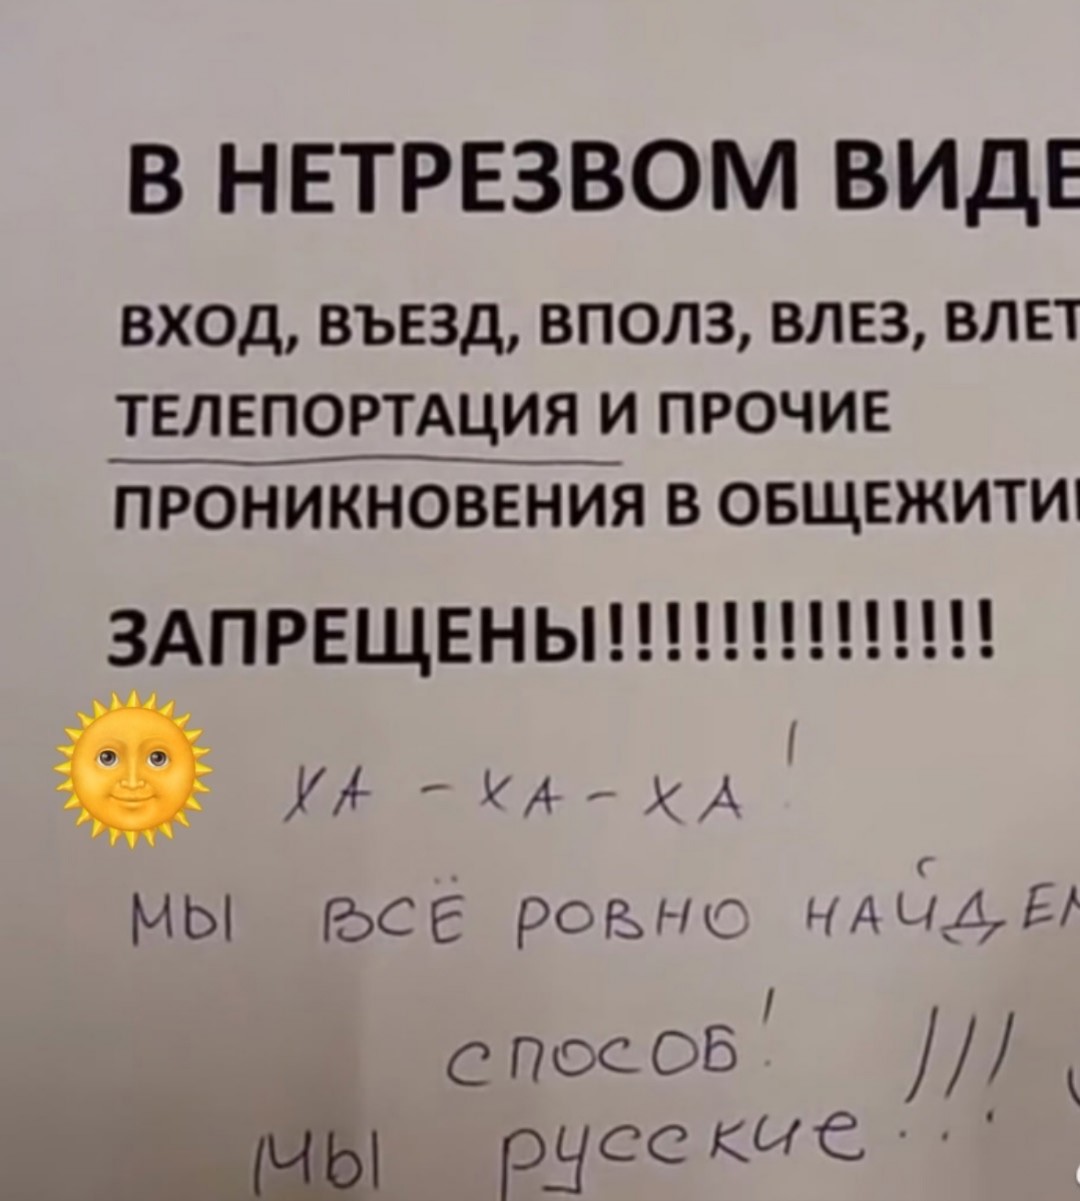 В НЕТРЕЗВОМ ВИДЕ
ВХОД, ВЪЕЗД, ВПОЛЗ, ВЛЕЗ, ВЛЕТ
ТЕЛЕПОРТАЦИЯ И ПРОЧИЕ
ПРОНИКНОВЕНИЯ В ОБЩЕЖИТИ
ЗАПРЕЩЕНЫ!!!!!!!!!!!!!!
ХА-ХА-ХА!
МЫ ВСЁ РОВНО НАЙДЕМ
СПОСОБ!
МЫ русские!!!